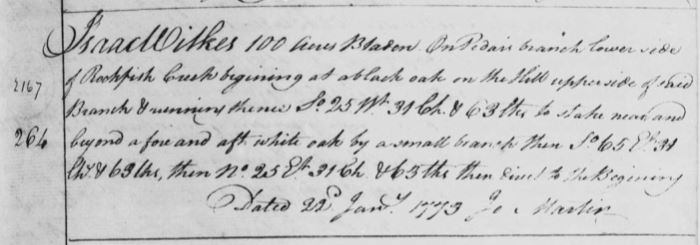 Isaac Wilkes 100 Acres Bladen On Pedars branch lower side
of Rockfish Creek begining at a black oak on the Hill upper side of said
2167
Branch & runing thence So. 25 Wt. 31 Ch. & 63 lks to stake near and
264
beyond a fore and aft white oak by a small branch then So. 65 Et. 31
Chs. & 63 lks, then No. 25 Et. 31 Ch. & 63 lks then direct to the Begining
Dated 22d. Jany. 1773 Jo. Martin